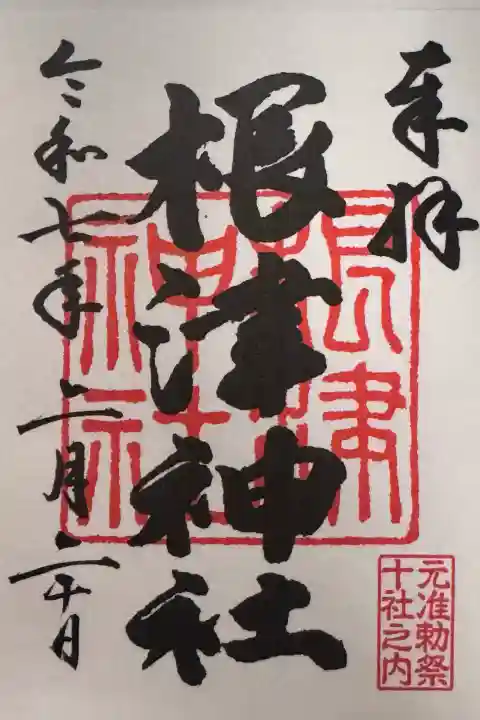 奉拝
根津神社
根津
神社
令和七年二月二十日
元准勅祭
十社之内